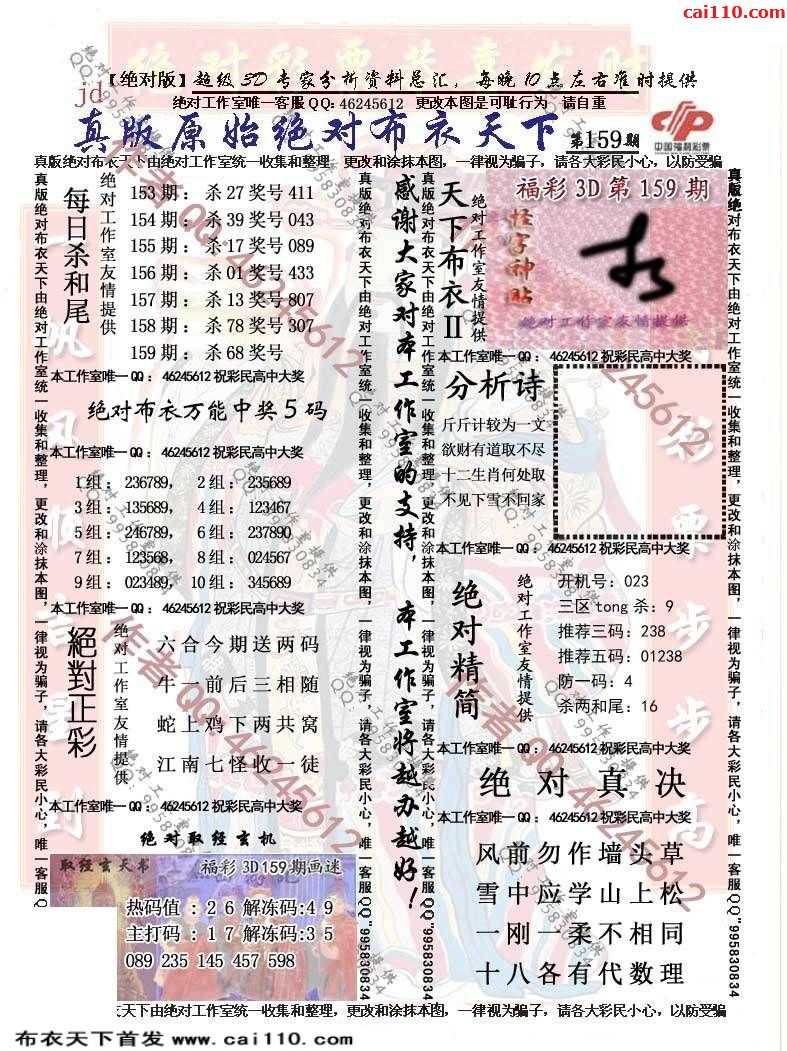 cai110.com
绝对彩票恭喜发财
【绝对版】超级3D专家分析资料总汇，每晚10点左右准时提供
jd
绝对工作室唯一客服QQ:46245612 更改本图是可耻行为 请自重
真版原始绝对布衣天下 第159期
中国福利彩票
真版绝对布衣天下由绝对工作室统一收集和整理，更改和涂抹本图，一律视为骗子，请各大彩民小心，以防受骗
每日杀和尾
绝对工作室友情提供
153期：杀27奖号411
154期：杀39奖号043
155期：杀17奖号089
156期：杀01奖号433
157期：杀13奖号807
158期：杀78奖号307
159期：杀68奖号
本工作室唯一QQ：46245612祝彩民高中大奖
绝对布衣万能中奖5码
本工作室唯一QQ：46245612祝彩民高中大奖
1组：236789， 2组：235689
3组：135689， 4组：123467
5组：246789， 6组：237890
7组：123568， 8组：024567
9组：023489， 10组：345689
本工作室唯一QQ：46245612祝彩民高中大奖
絕對正彩
绝对工作室友情提供
六合今期送两码
牛一前后三相随
蛇上鸡下两共窝
江南七怪收一徒
本工作室唯一QQ：46245612祝彩民高中大奖
绝对取经玄机
取经玄天书
福彩3D159期画迷
热码值：26解冻码:49
主打码：17解冻码:35
089 235 145 457 598
感谢大家对本工作室的支持，本工作室将越办越好！
天下布衣II
绝对工作室友情提供
福彩3D第159期
怪字神贴
绝对工作室友情提供
本工作室唯一QQ：46245612祝彩民高中大奖
分析诗
斤斤计较为一文
欲财有道取不尽
十二生肖何处取
不见下雪不回家
本工作室唯一QQ：46245612祝彩民高中大奖
绝对精简
绝对工作室友情提供
开机号：023
三区tong杀：9
推荐三码：238
推荐五码：01238
防一码：4
杀两和尾：16
本工作室唯一QQ：46245612祝彩民高中大奖
绝对真决
本工作室唯一QQ：46245612祝彩民高中大奖
风前勿作墙头草
雪中应学山上松
一刚一柔不相同
十八各有代数理
真版绝对布衣天下由绝对工作室统一收集和整理，更改和涂抹本图，一律视为骗子，请各大彩民小心，唯一客服QQ
真版绝对布衣天下由绝对工作室统一收集和整理，更改和涂抹本图，一律视为骗子，请各大彩民小心，唯一客服QQ"995830834
真版绝对布衣天下由绝对工作室统一收集和整理，更改和涂抹本图，一律视为骗子，请各大彩民小心，唯一客服QQ"995830834
真版绝对布衣天下由绝对工作室统一收集和整理，更改和涂抹本图，一律视为骗子，请各大彩民小心，唯一客服QQ"995830834
天下由绝对工作室统一收集和整理，更改和涂抹本图，一律视为骗子，请各大彩民小心，以防受骗
作者QQ:46245612
绝对工作室提供
QQ:995830834
布衣天下首发 www.cai110.com